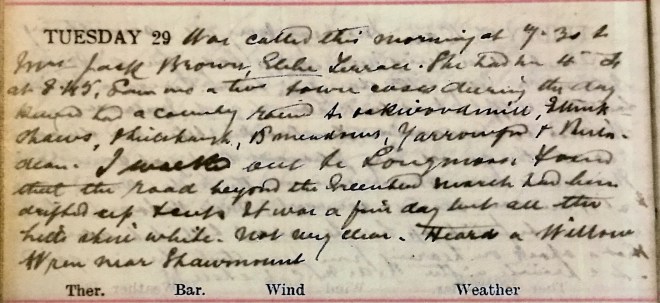 TUESDAY 29 Was called this morning at 7.30 to
Mrs Jack Brown, Glebe Terrace. She had her 4th
at 8.45, Saw a town cases during the day
had a country round to oakwoodmill, Ettrick
shaws, Philiphaugh, Bmeadows, Yarrowford &
dean. I walked out to Longmoor & found
that the road beyond the Greenhead march had been
drifted up & cut. It was a fine day but all the
hills shine white. Not very clear. Heard a Willow
Wren near Shawmount
Ther. Bar. Wind Weather